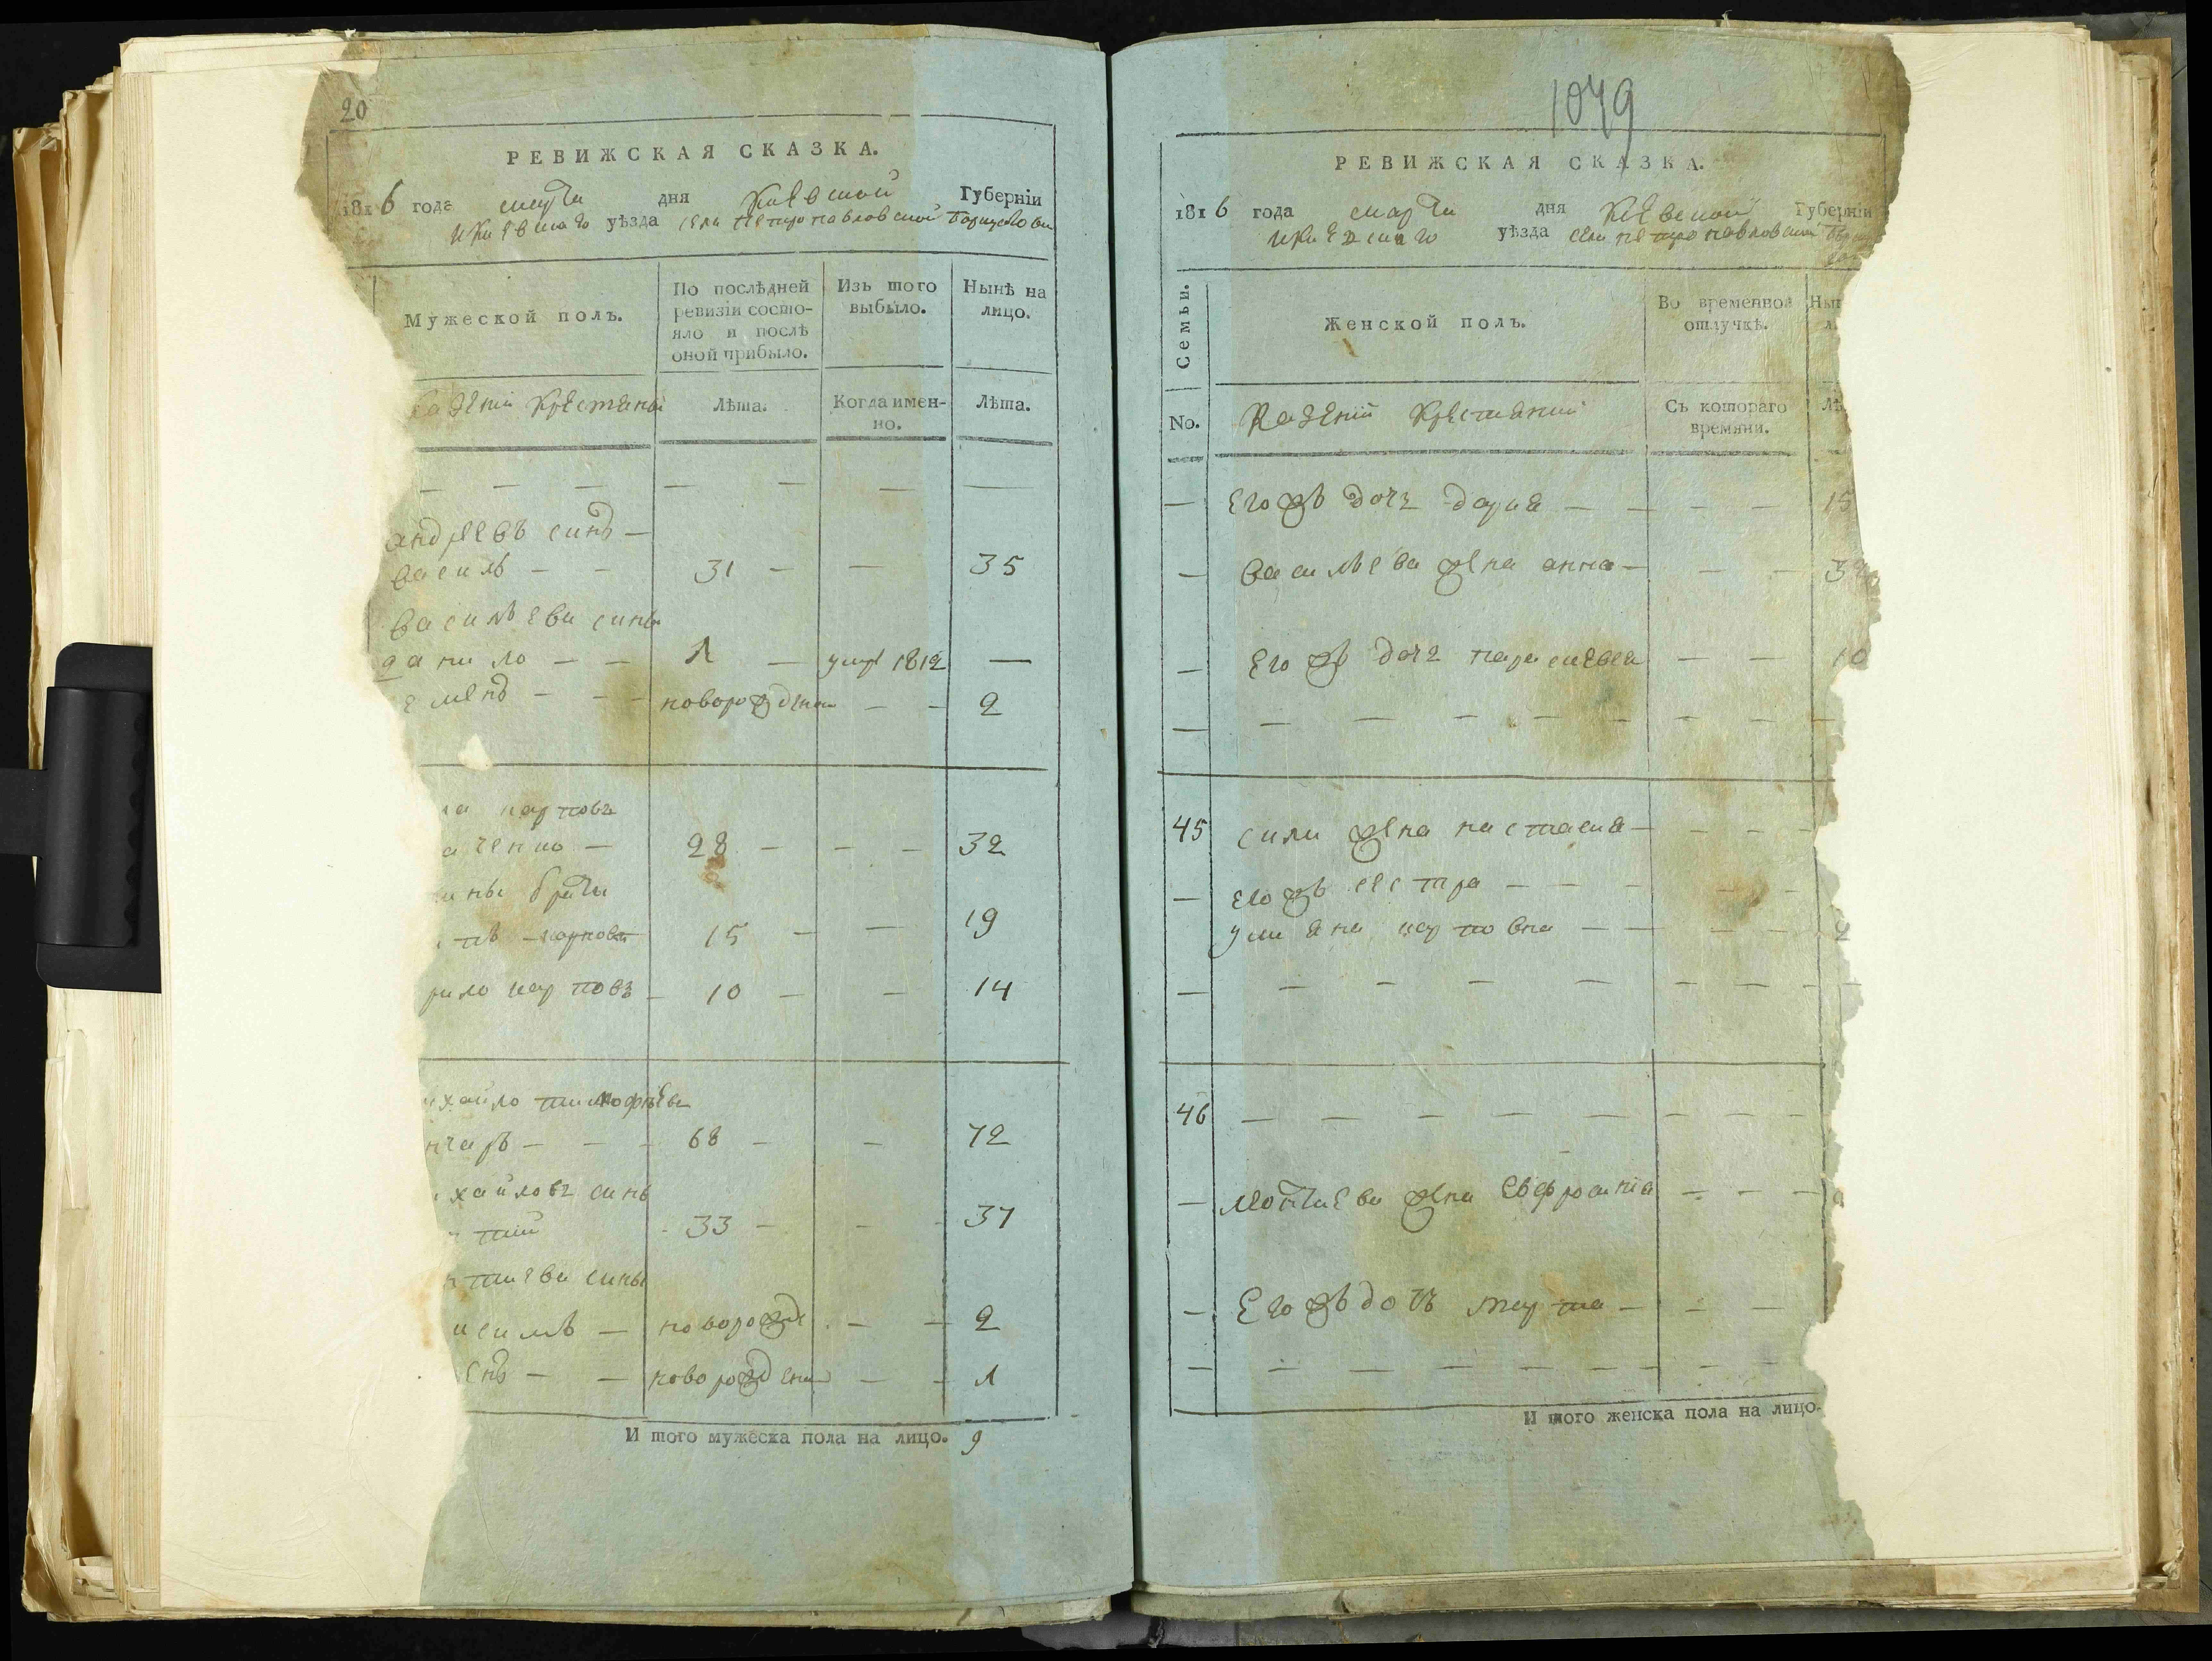 20
РЕВИЖСКАЯ СКАЗКА.
1816 года марта дня Киевской Губерніи
Киевскаго уѣзда села Петропавловской Борщаговки
Мужеской полъ.
По послѣдней ревизіи состояло и послѣ оной прибыло.
Изъ того выбыло.
Нынѣ на лицо.
Казенніи крестяны
Лѣта.
Когда именно.
Лѣта.
андреевъ синъ —
василь — — 31 — — 35
василѣеви сины
данило — — 1 — умре 1812 —
семенъ — — новорожденни — — 2
карповъ
ченко — 28 — — — 32
ины брати
карповъ 15 — — 19
рило карповъ — 10 — — 14
ихайло тимофѣевъ
нчаръ — — — 68 — — 72
хайловъ синъ
тий — 33 — — — 37
нтиеви сины
исимъ — новорожде — — 2
енъ — — новорождении — — 1
И того мужеска пола на лицо. 9
1079
РЕВИЖСКАЯ СКАЗКА.
1816 года марта дня Киевской Губерніи
Киевскаго уѣзда села петропавловской
Семьи.
Женской полъ.
Во временной отлучкѣ.
Ны
No.
Казеніи крестяники
Съ котораго времяни.
Лѣ
— Егожъ дочь дария — — — — 15
— василѣева жена анна — — — —
— Его жъ дочь параскевея — — 10
— — — — — — — — —
45 сили жена настасия — — — —
— егожъ сестра — — — — —
улияна карповна — — — —
— — — — — — — —
46 — — — — — — — —
— Контиева жена Евфросиніа — — —
— Его жъ дочъ марта — — —
— — — — — — — —
И того женска пола на лицо.